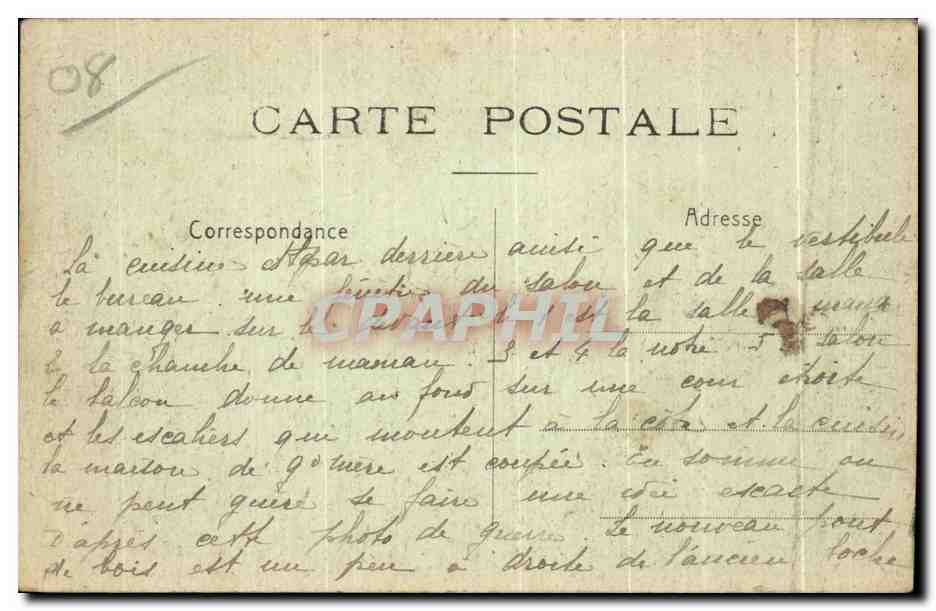 08
CARTE POSTALE
Correspondance
Adresse
La cuisine est par derrière ainsi que le vestibule
le bureau. une fenêtre du salon et de la salle
a manger sur le est la salle a mang
2 la chambre de maman. 3 et 4 la notre 5 salon
le balcon donne au fond sur une cour étroite
et les escaliers qui montent à la côte et la cuisin,
la maison de gd mère est coupée. En somme on
ne peut guère se faire une idée escacte
d'après cette photo de guerre. Le nouveau pont
de bois est un peu à droite de l'ancien
CPAPHIL